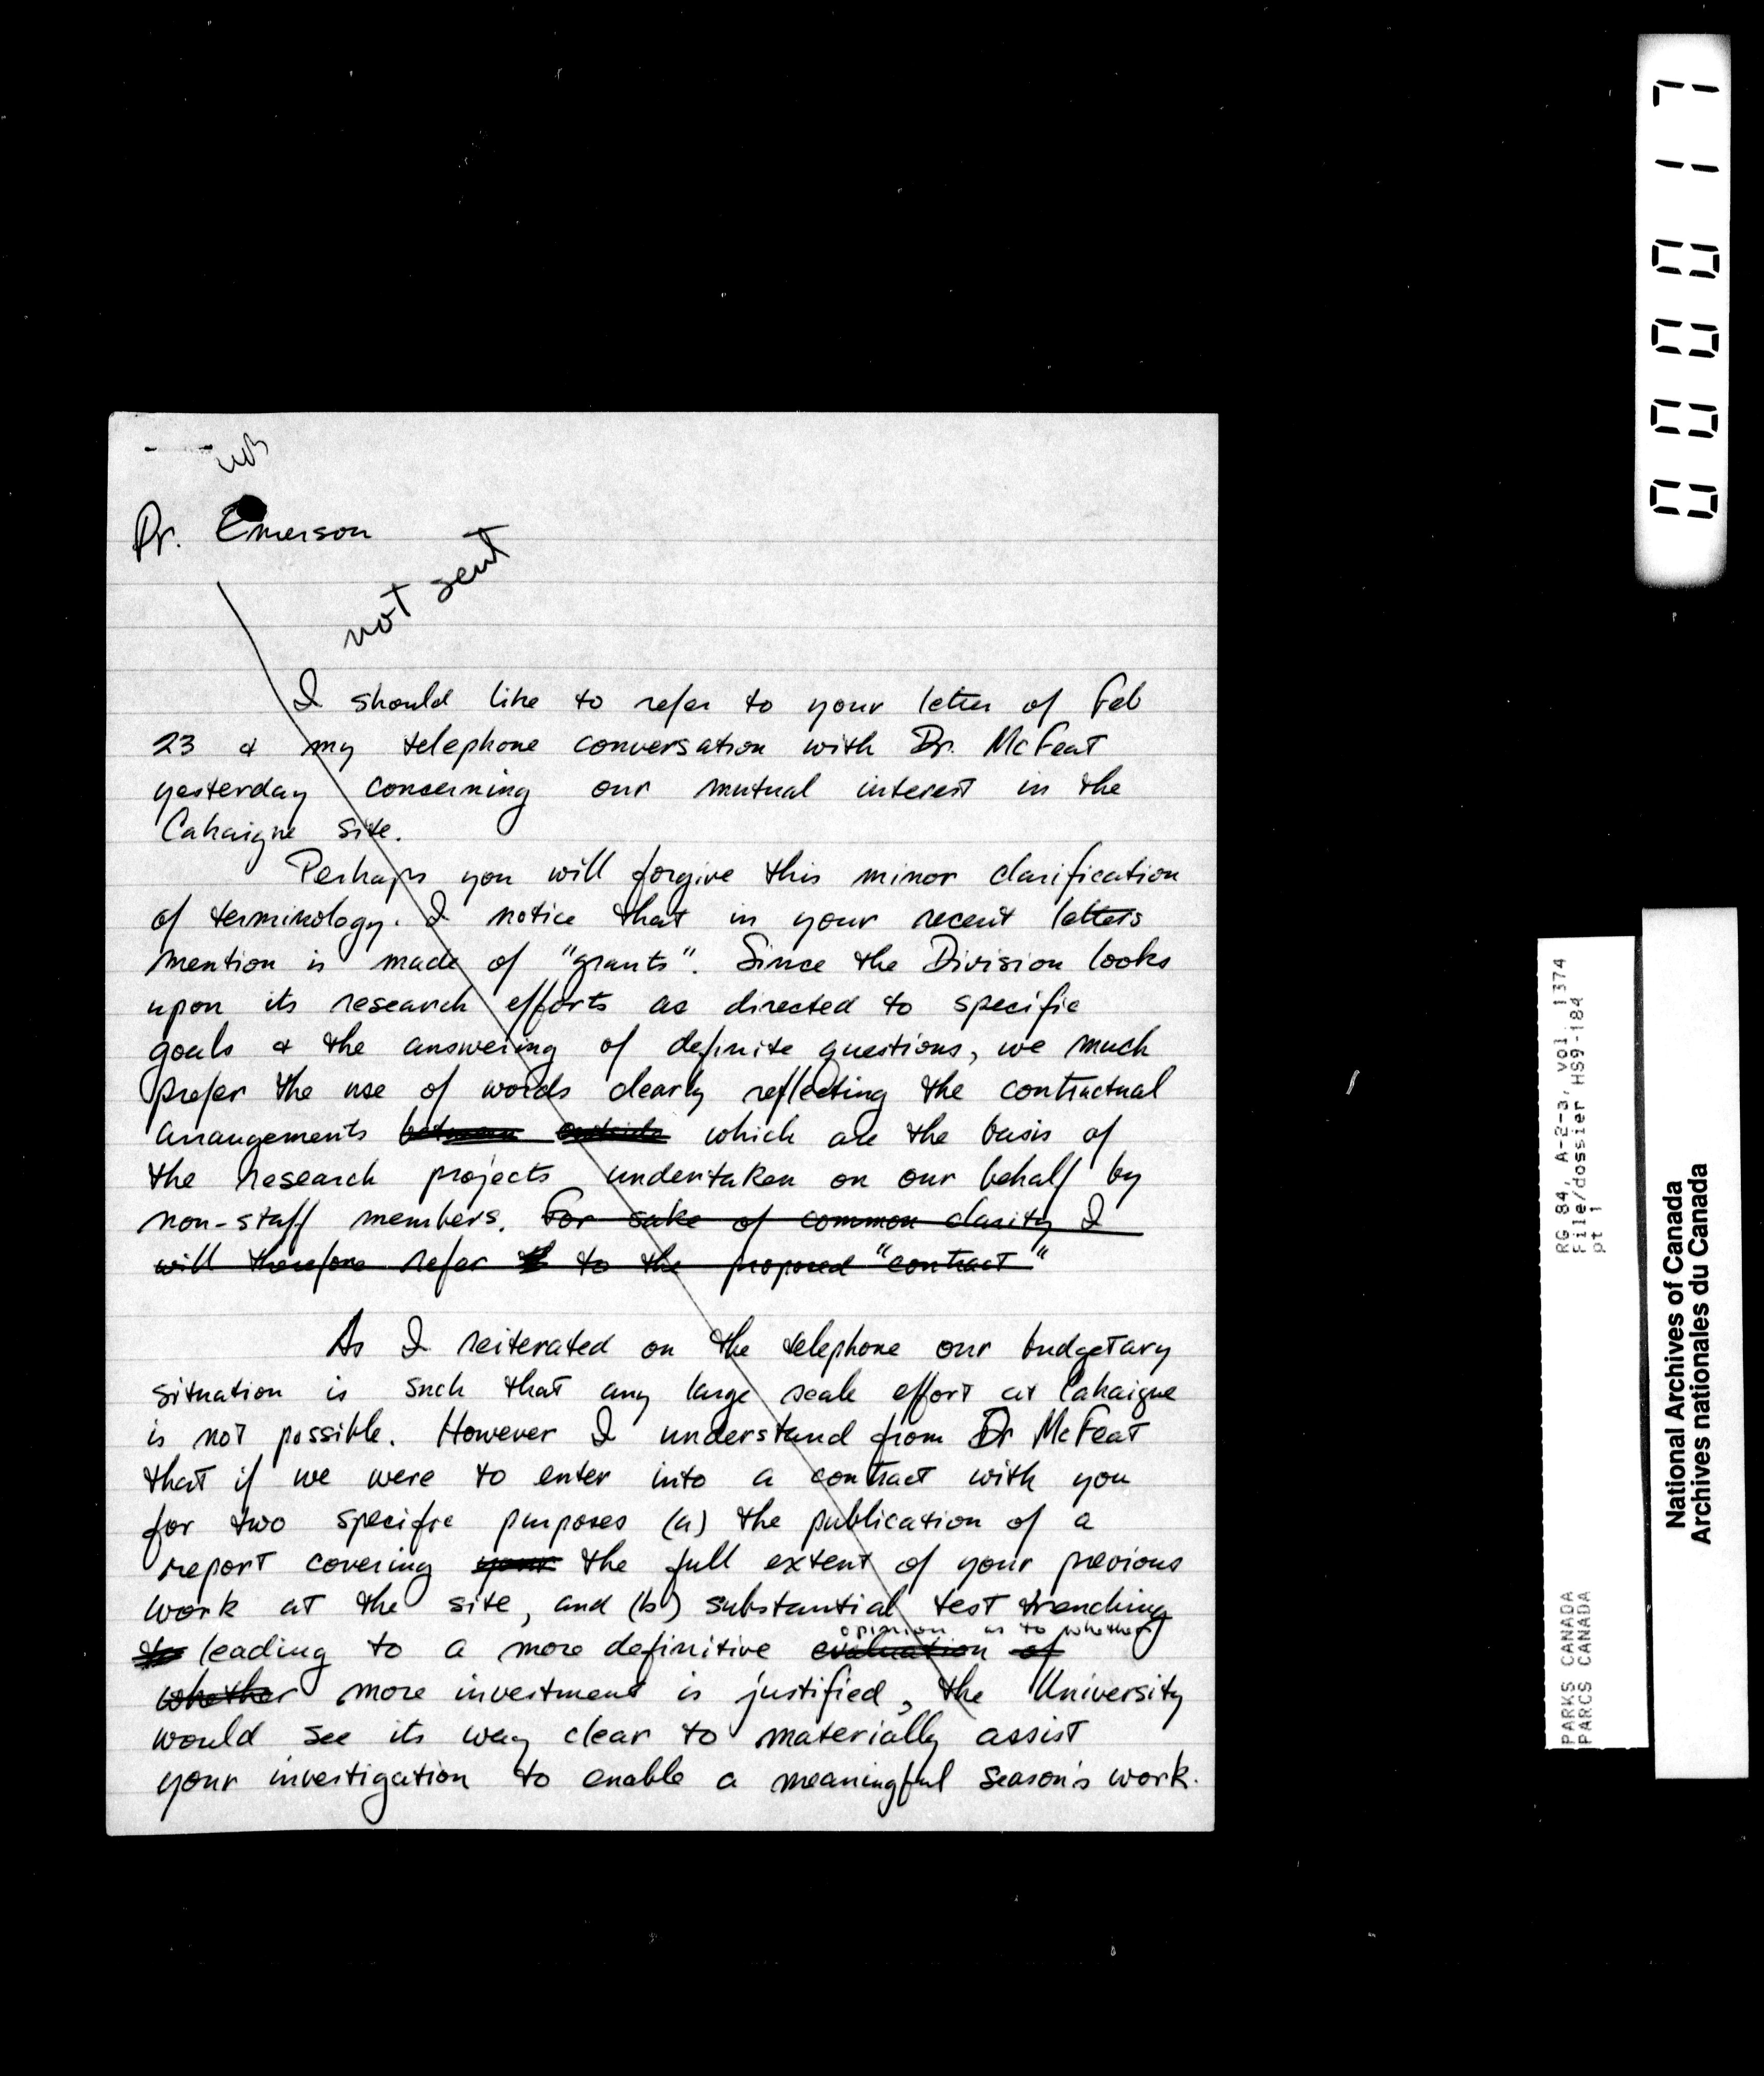 Dr. Emerson
not sent
I should like to refer to your letter of Feb
23 & my telephone conversation with Dr. McFeat
yesterday concerning our mutual interest in the
Cahaigne site.
Perhaps you will forgive this minor clarification
of terminology. I notice that in your recent letters
mention is made of "grants". Since the Division looks
upon its research efforts as directed to specific
goals & the answering of definite questions, we much
prefer the use of words clearly reflecting the contractual
arrangements between outside which are the basis of
the research projects undertaken on our behalf by
non-staff members. For sake of common clarity I
will therefore refer to the proposed "contract"
As I reiterated on the telephone our budgetary
situation is such that any large scale effort at Cahaigne
is not possible. However I understand from Dr McFeat
that if we were to enter into a contract with you
for two specific purposes (a) the publication of a
report covering your the full extent of your previous
work at the site, and (b) substantial test trenching
opinion as to whether
to leading to a more definitive evaluation of
whether more investment is justified, the University
would see its way clear to materially assist
your investigation to enable a meaningful season's work.
000017
RG 84, A-2-a, vol. 1374
File/dossier HS9-184
pt 1
PARKS CANADA
PARCS CANADA
National Archives of Canada
Archives nationales du Canada